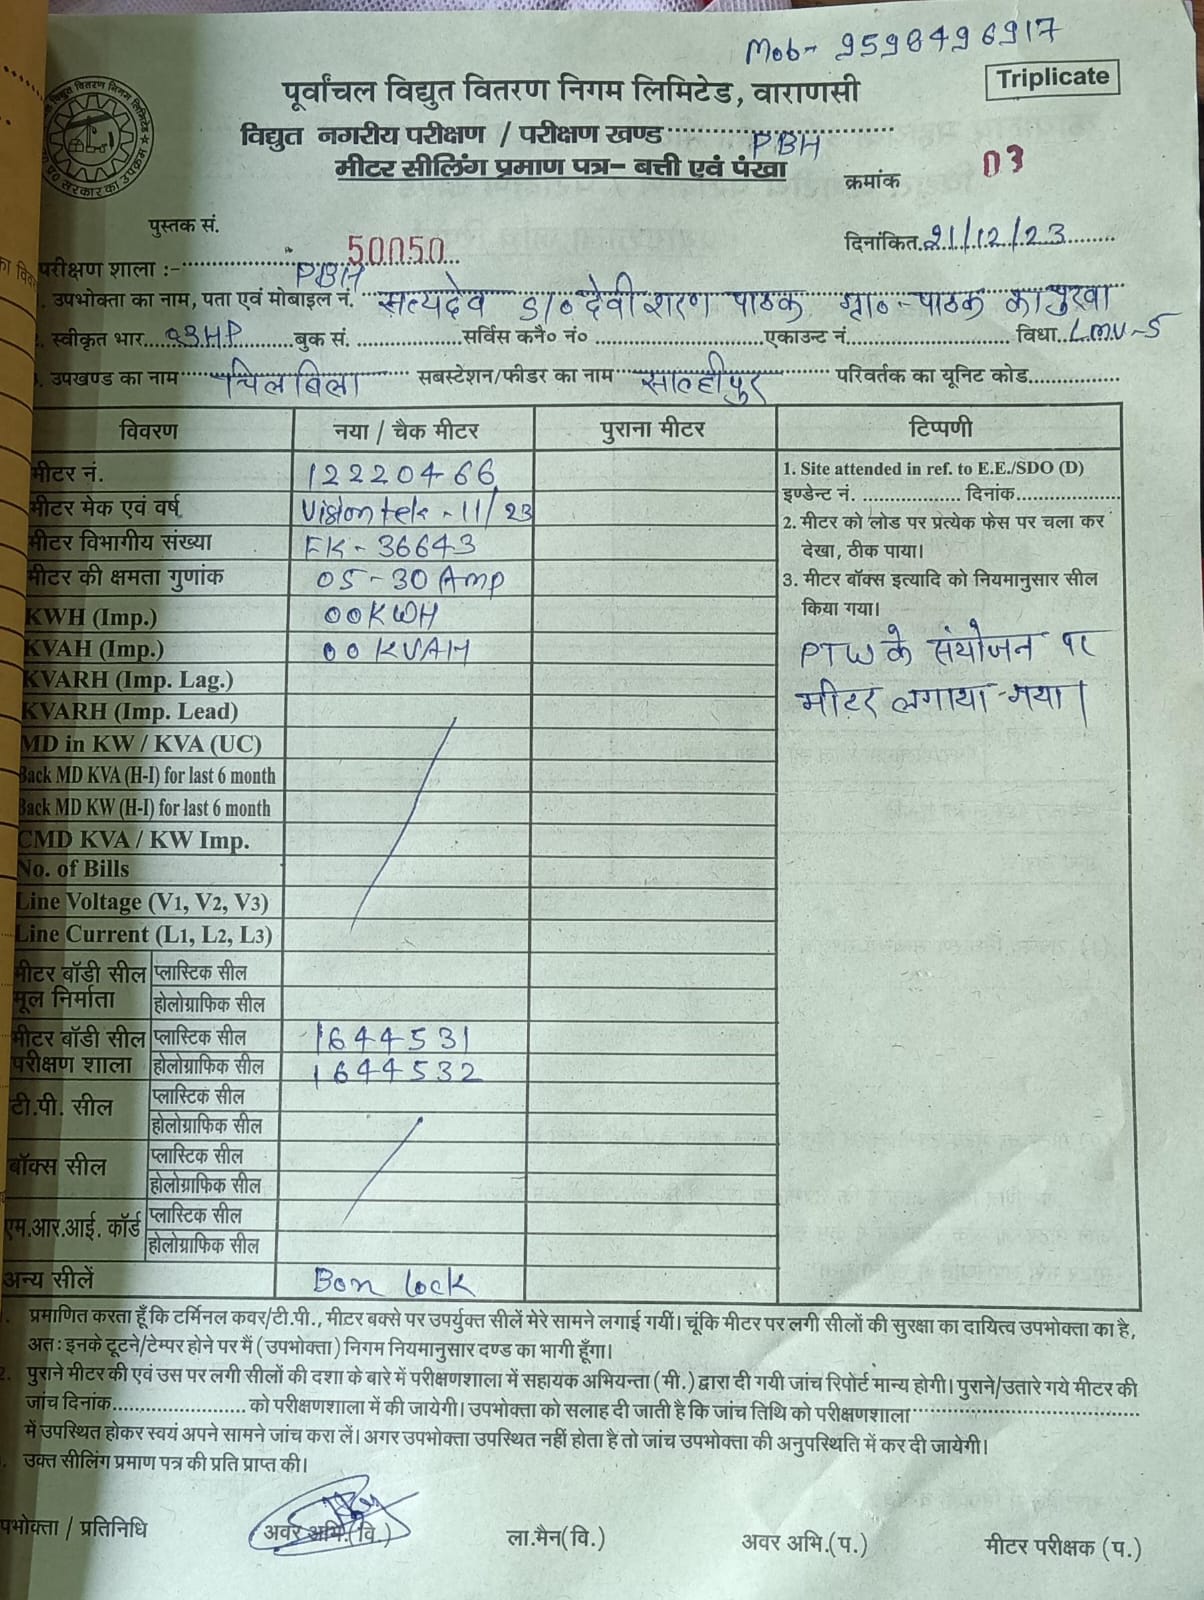 Mob- 9598496917
Triplicate
पूर्वांचल विद्युत वितरण निगम लिमिटेड, वाराणसी
विद्युत नगरीय परीक्षण / परीक्षण खण्ड PBH
मीटर सीलिंग प्रमाण पत्र- बत्ती एवं पंखा
क्रमांक 03
पुस्तक सं. 50050
दिनांकित. 21/12/23
परीक्षण शाला :- PBH
उपभोक्ता का नाम, पता एवं मोबाइल नं. सत्यदेव S/० देवी शरण पाठक ग्रा०-पाठक का पुरवा
स्वीकृत भार 03HP बुक सं. सर्विस कनै० नं० एकाउन्ट नं. विधा L.M.V-5
उपखण्ड का नाम चिलबिला सबस्टेशन/फीडर का नाम साल्हीपुर परिवर्तक का यूनिट कोड
विवरण नया / चैक मीटर पुराना मीटर टिप्पणी
मीटर नं. 12220466
मीटर मेक एवं वर्ष Visiontek - 11/23
मीटर विभागीय संख्या EK-36643
मीटर की क्षमता गुणांक 05-30 Amp
KWH (Imp.) 00KWH
KVAH (Imp.) 00KVAH
KVARH (Imp. Lag.)
KVARH (Imp. Lead)
MD in KW / KVA (UC)
Back MD KVA (H-I) for last 6 month
Back MD KW (H-I) for last 6 month
CMD KVA / KW Imp.
No. of Bills
Line Voltage (V1, V2, V3)
Line Current (L1, L2, L3)
मीटर बॉडी सील मूल निर्माता प्लास्टिक सील
होलोग्राफिक सील
मीटर बॉडी सील परीक्षण शाला प्लास्टिक सील 1644531
होलोग्राफिक सील 1644532
टी.पी. सील प्लास्टिक सील
होलोग्राफिक सील
बॉक्स सील प्लास्टिक सील
होलोग्राफिक सील
एम.आर.आई. कॉर्ड प्लास्टिक सील
होलोग्राफिक सील
अन्य सीलें Box lock
1. Site attended in ref. to E.E./SDO (D)
इण्डेन्ट नं. दिनांक
2. मीटर को लोड पर प्रत्येक फेस पर चला कर
देखा, ठीक पाया।
3. मीटर बॉक्स इत्यादि को नियमानुसार सील
किया गया।
PTW के संयोजन पर
मीटर लगाया गया।
प्रमाणित करता हूँ कि टर्मिनल कवर/टी.पी., मीटर बक्से पर उपर्युक्त सीलें मेरे सामने लगाई गयीं। चूंकि मीटर पर लगी सीलों की सुरक्षा का दायित्व उपभोक्ता का है,
अतः इनके टूटने/टेम्पर होने पर मैं (उपभोक्ता) निगम नियमानुसार दण्ड का भागी हूँगा।
पुराने मीटर की एवं उस पर लगी सीलों की दशा के बारे में परीक्षणशाला में सहायक अभियन्ता (मी.) द्वारा दी गयी जांच रिपोर्ट मान्य होगी। पुराने/उतारे गये मीटर की
जांच दिनांक को परीक्षणशाला में की जायेगी। उपभोक्ता को सलाह दी जाती है कि जांच तिथि को परीक्षणशाला
में उपस्थित होकर स्वयं अपने सामने जांच करा लें। अगर उपभोक्ता उपस्थित नहीं होता है तो जांच उपभोक्ता की अनुपस्थिति में कर दी जायेगी।
उक्त सीलिंग प्रमाण पत्र की प्रति प्राप्त की।
पभोक्ता / प्रतिनिधि अवर अभि.(वि.) ला.मैन(वि.) अवर अभि.(प.) मीटर परीक्षक (प.)